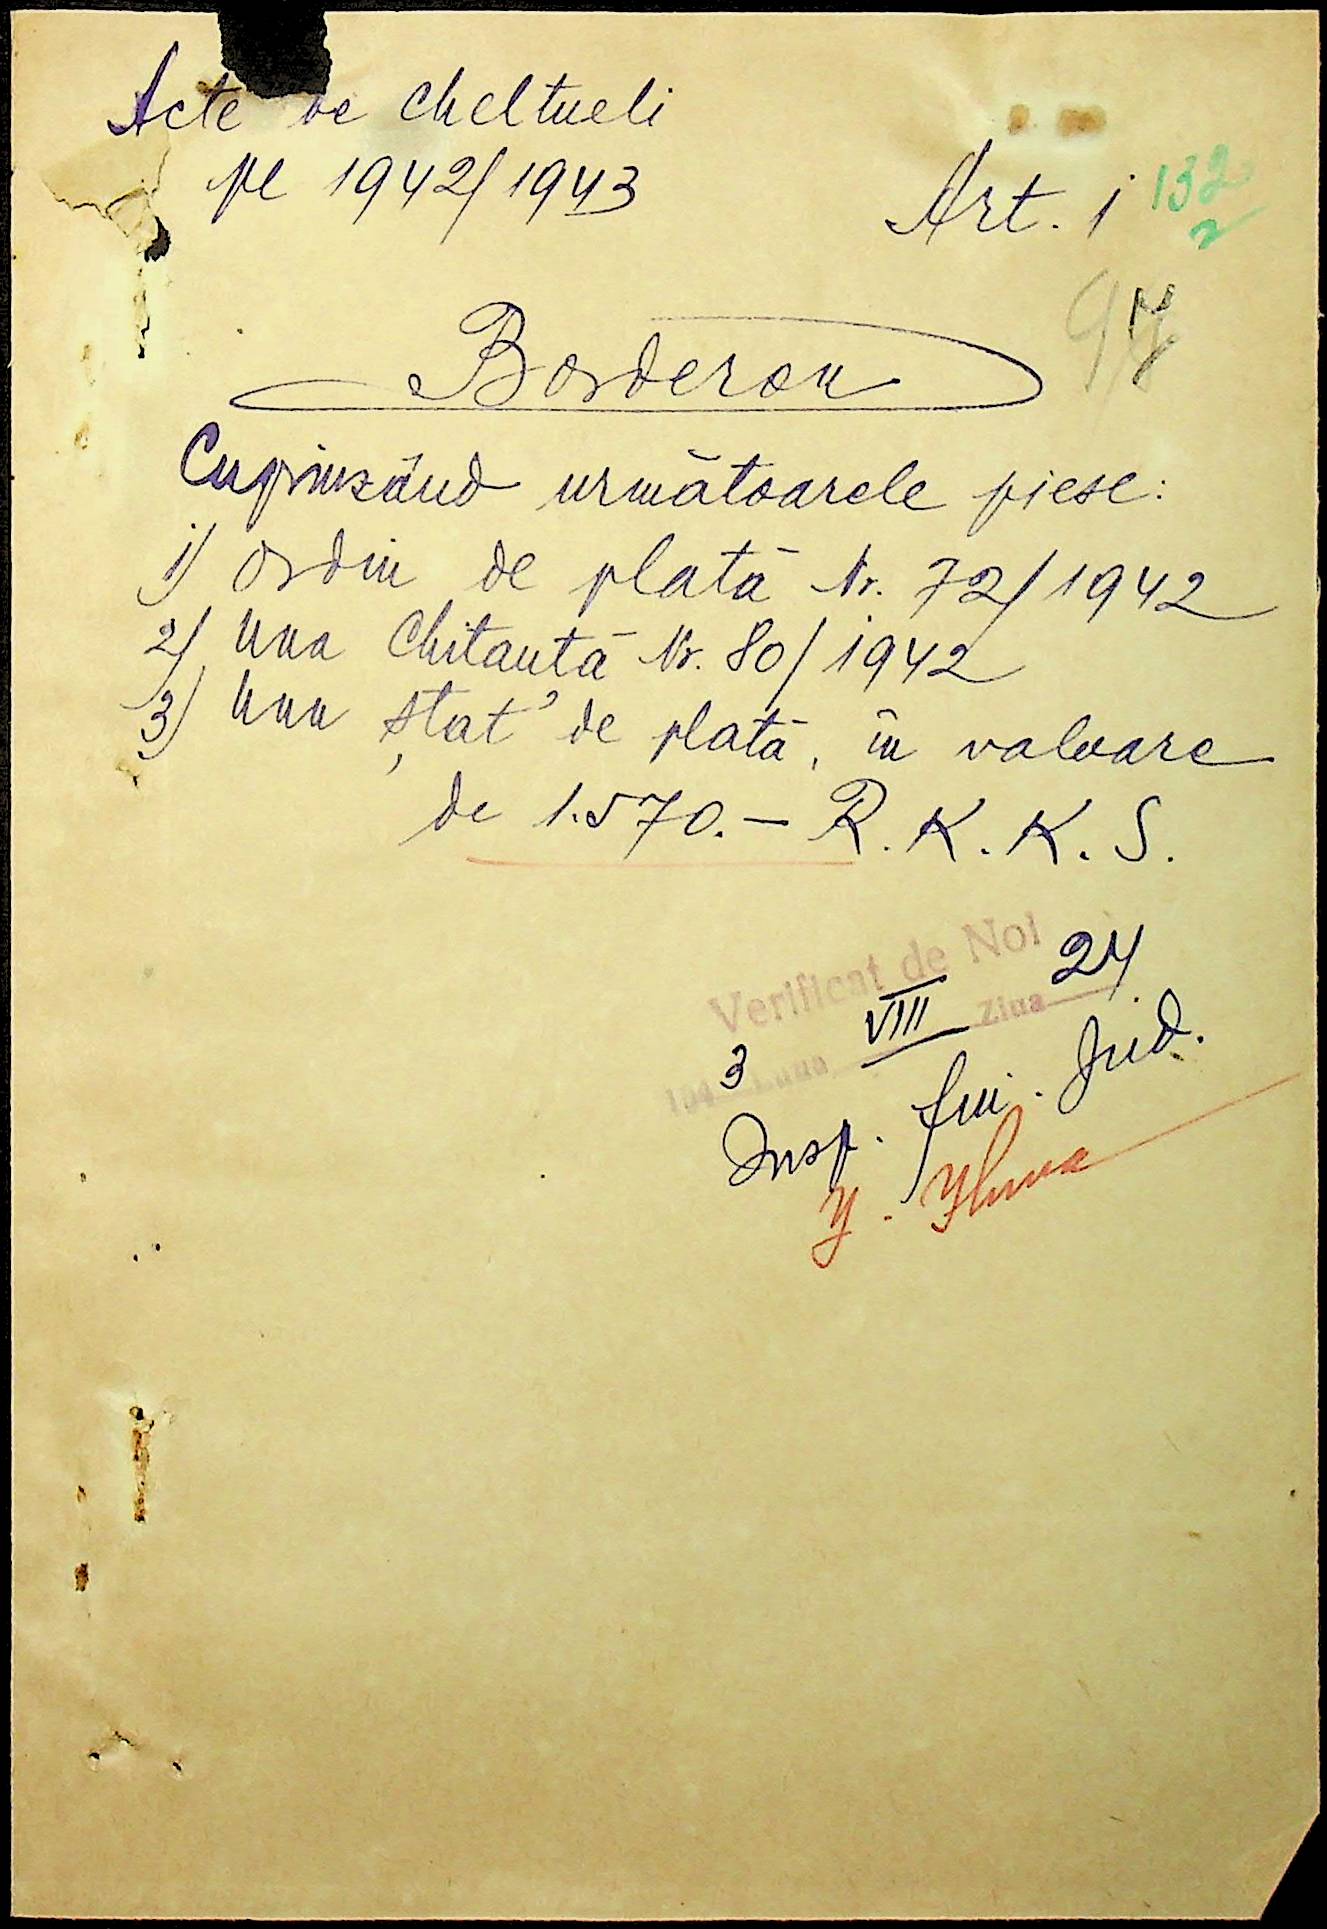 Acte de cheltueli
pe 1942/1943
Art. 1
132
2
97
Borderou
Cuprinzând următoarele piese:
1) Ordin de plată Nr. 72/1942
2) Una Chitantă Nr. 80/1942
3) Unu ștat de plată, în valoare
de 1.570.– R.K.K.S.
Verificat de Noi
194 3 Luna VIII Ziua 24
Insp. fin. Jud.